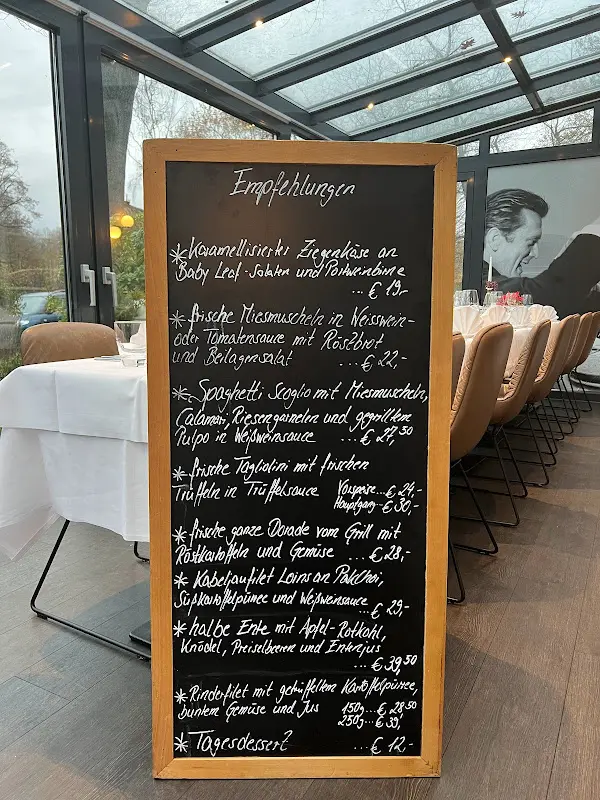 Empfehlungen
* Karamellisierter Ziegenkäse an
Baby Leaf-Salaten und Portweinbirne
... € 19,-
* frische Miesmuscheln in Weisswein-
oder Tomatensauce mit Röstbrot
und Beilagensalat ... € 22,-
* Spaghetti Scoglio mit Miesmuscheln,
Calamari, Riesengarnelen und gegrilltem
Pulpo in Weißweinsauce ... € 27,50
* frische Tagliolini mit frischen
Trüffeln in Trüffelsauce Vorspeise... € 24,-
Hauptgang... € 30,-
* frische ganze Dorade vom Grill mit
Röstkartoffeln und Gemüse ... € 28,-
* Kabeljaufilet Loins an Pak Choi,
Süßkartoffelpüree und Weißweinsauce
... € 29,-
* halbe Ente mit Apfel-Rotkohl,
Knödel, Preiselbeeren und Entenjus
... € 39,50
* Rinderfilet mit getrüffeltem Kartoffelpüree,
buntem Gemüse und Jus 150g... € 28,50
250g... € 39,-
* Tagesdessert ... € 12,-